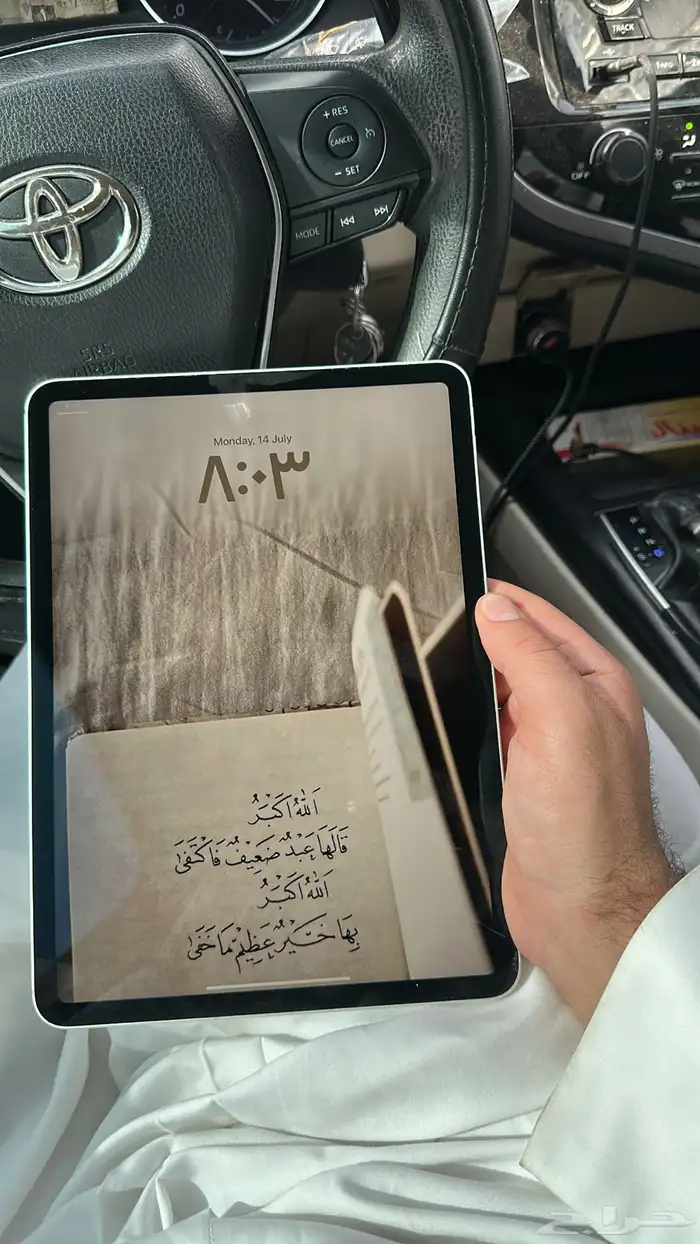 TRACK
INFO
+ RES
CANCEL
- SET
OFF
MODE
SRS
AIRBAG
Monday, 14 July
٨:٠٣
اَللّٰهُ اَكْبَرُ
قَالَهَا عَبْدٌ ضَعِيْفٌ فَاكْتَفَىٰ
اَللّٰهُ اَكْبَرُ
بِهَا خَيْرٌ عَظِيْمٌ مَا خَفَىٰ
حراج